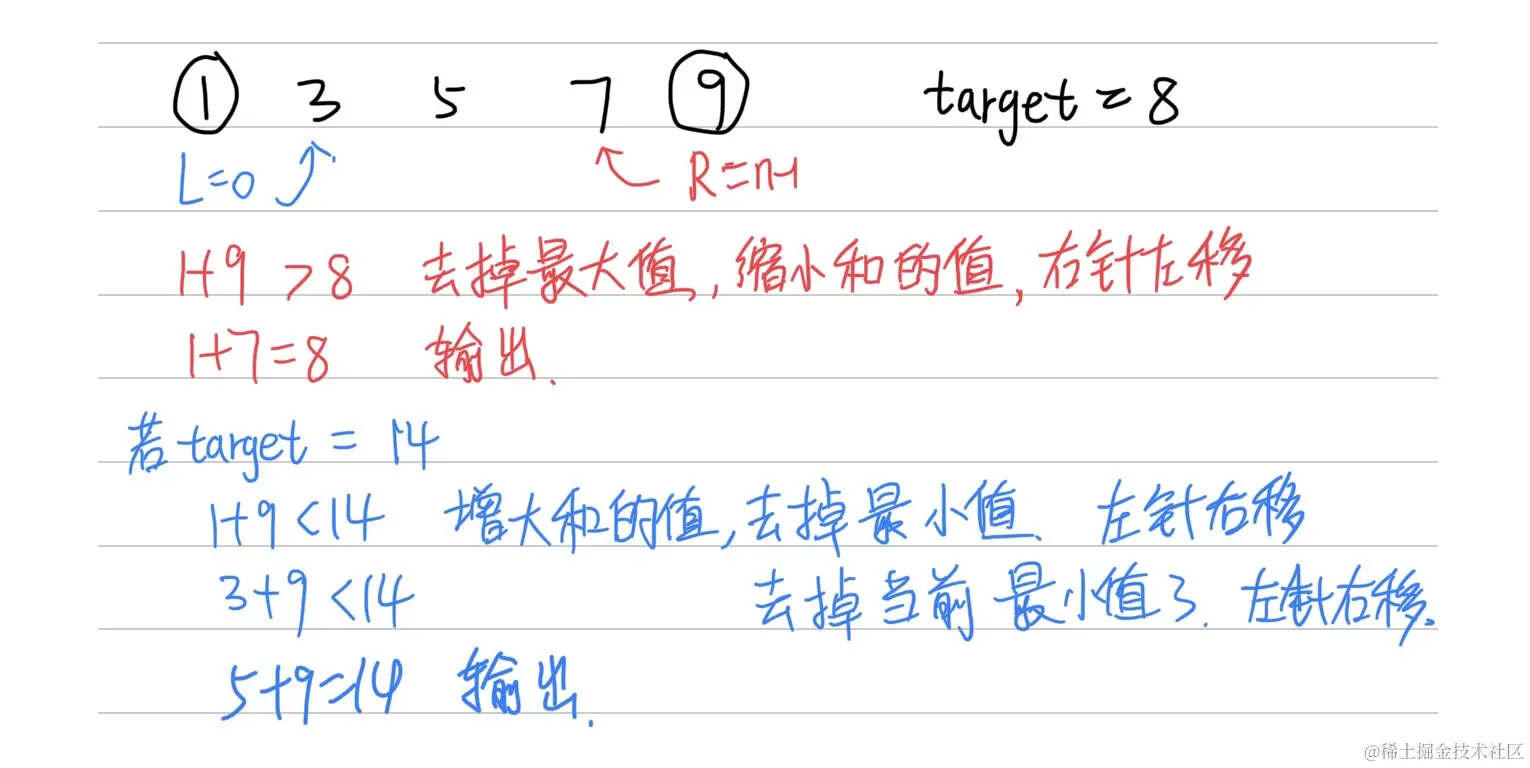 1 3 5 7 9 target = 8
L=0 R=n-1
1+9 >8 去掉最大值,缩小和的值,右针左移
1+7=8 输出.
若target = 14
1+9<14 增大和的值,去掉最小值. 左针右移
3+9<14 去掉当前最小值3. 左针右移.
5+9=14 输出.
@稀土掘金技术社区